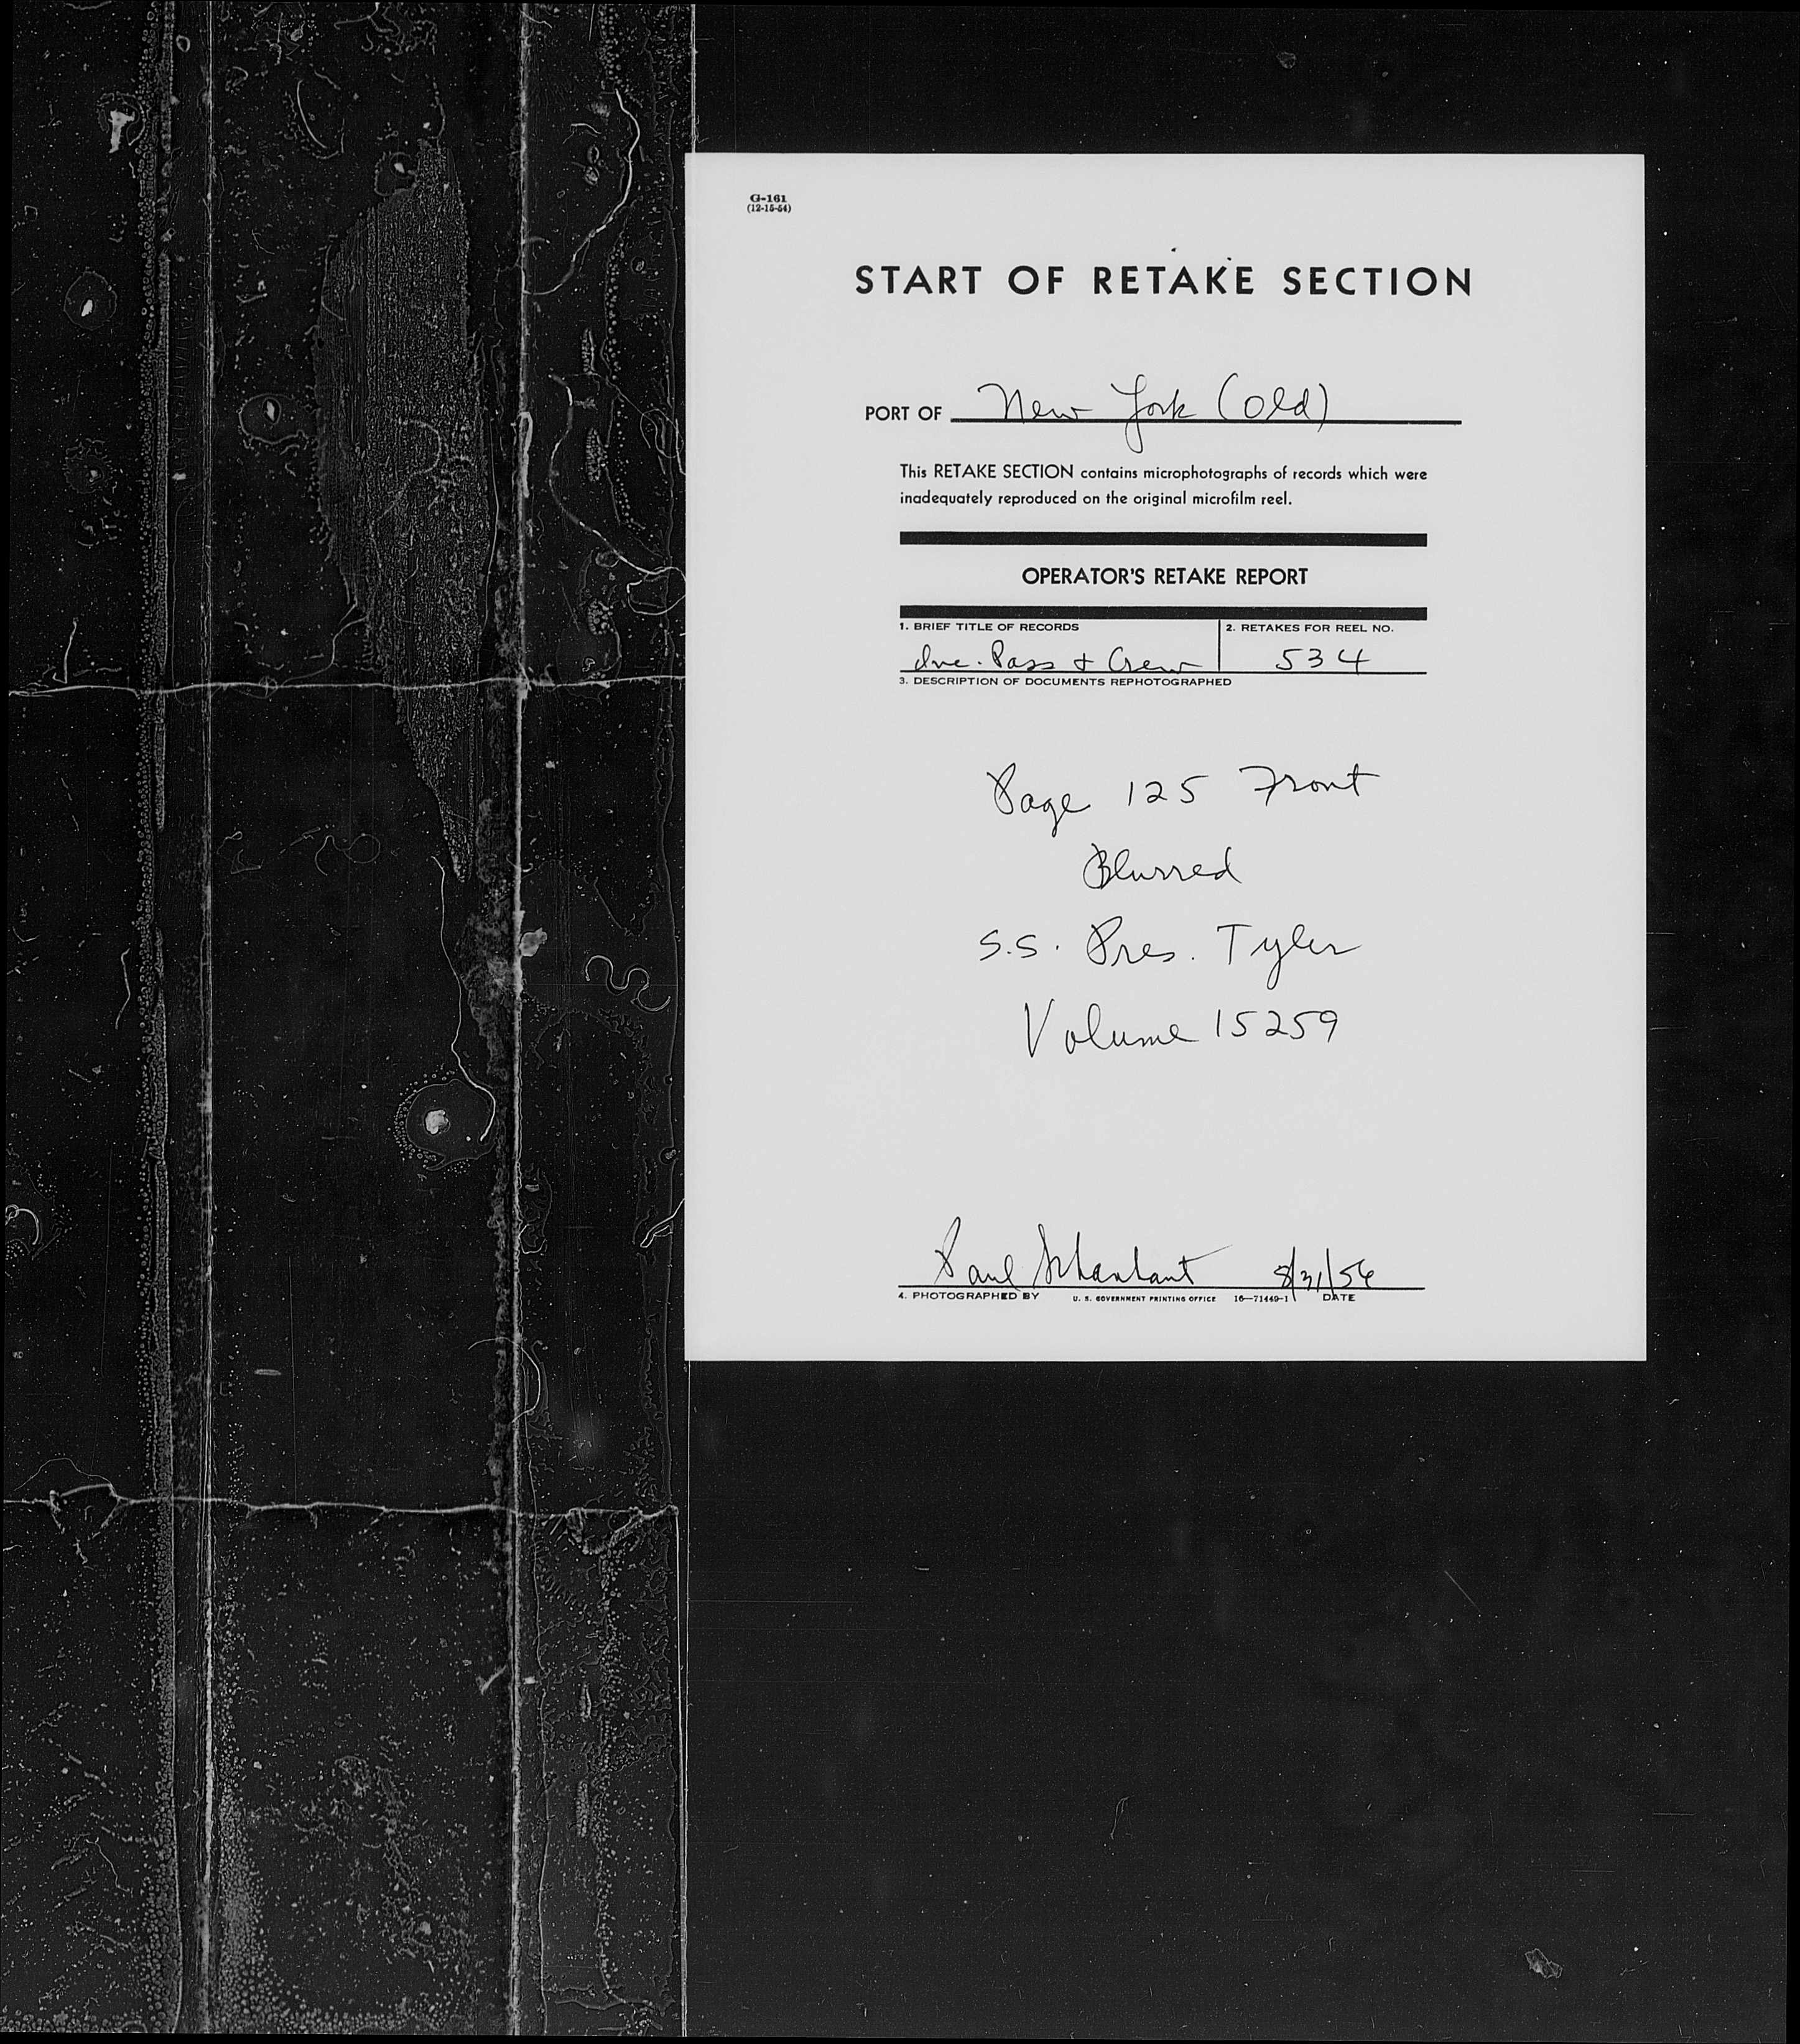 G-161
(12-15-54)
START OF RETAKE SECTION
PORT OF New York (old)
This RETAKE SECTION contains microphotographs of records which were
inadequately reproduced on the original microfilm reel.
OPERATOR'S RETAKE REPORT
1. BRIEF TITLE OF RECORDS
Inc. Pass & Crew
2. RETAKES FOR REEL NO.
534
3. DESCRIPTION OF DOCUMENTS REPHOTOGRAPHED
Page 125 Front
Blurred
S.S. Pres. Tyler
Volume 15259
Paul 8/31/56
4. PHOTOGRAPHED BY U. S. GOVERNMENT PRINTING OFFICE 16—71449-1 DATE